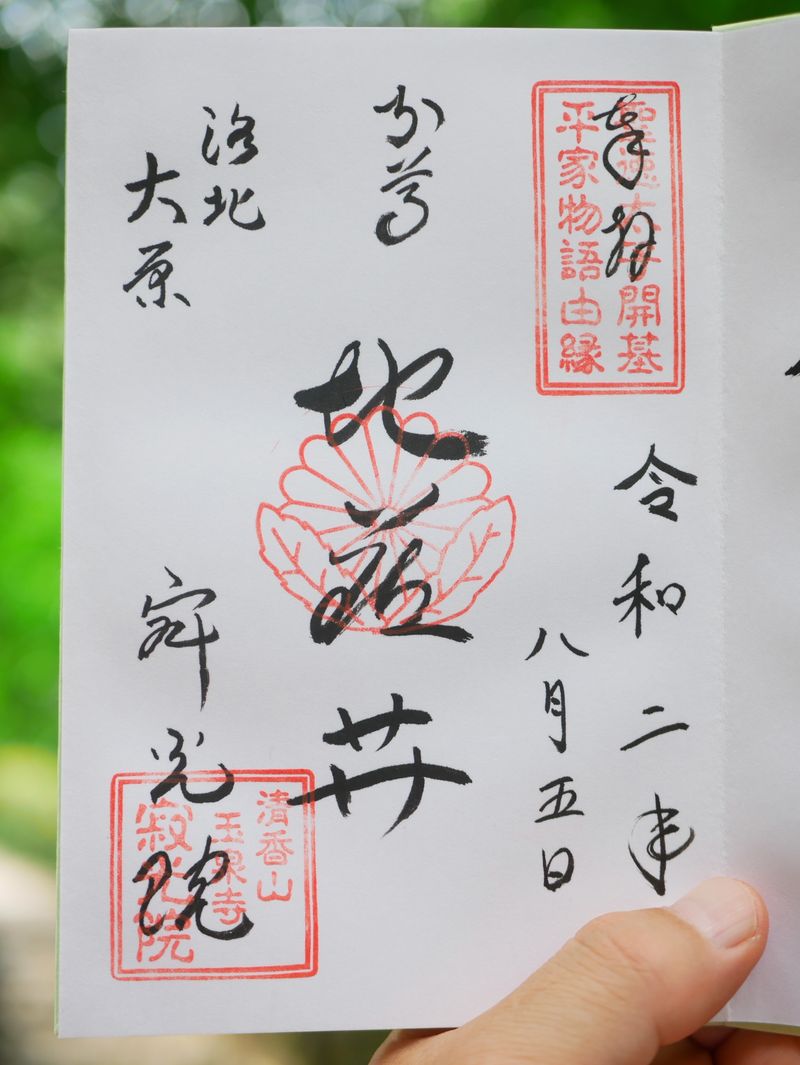 奉拝
聖徳太子開基
平家物語由縁
令和二年
八月五日
本尊
地蔵𦬇
洛北
大原
寂光院
清香山
玉泉寺
寂光院